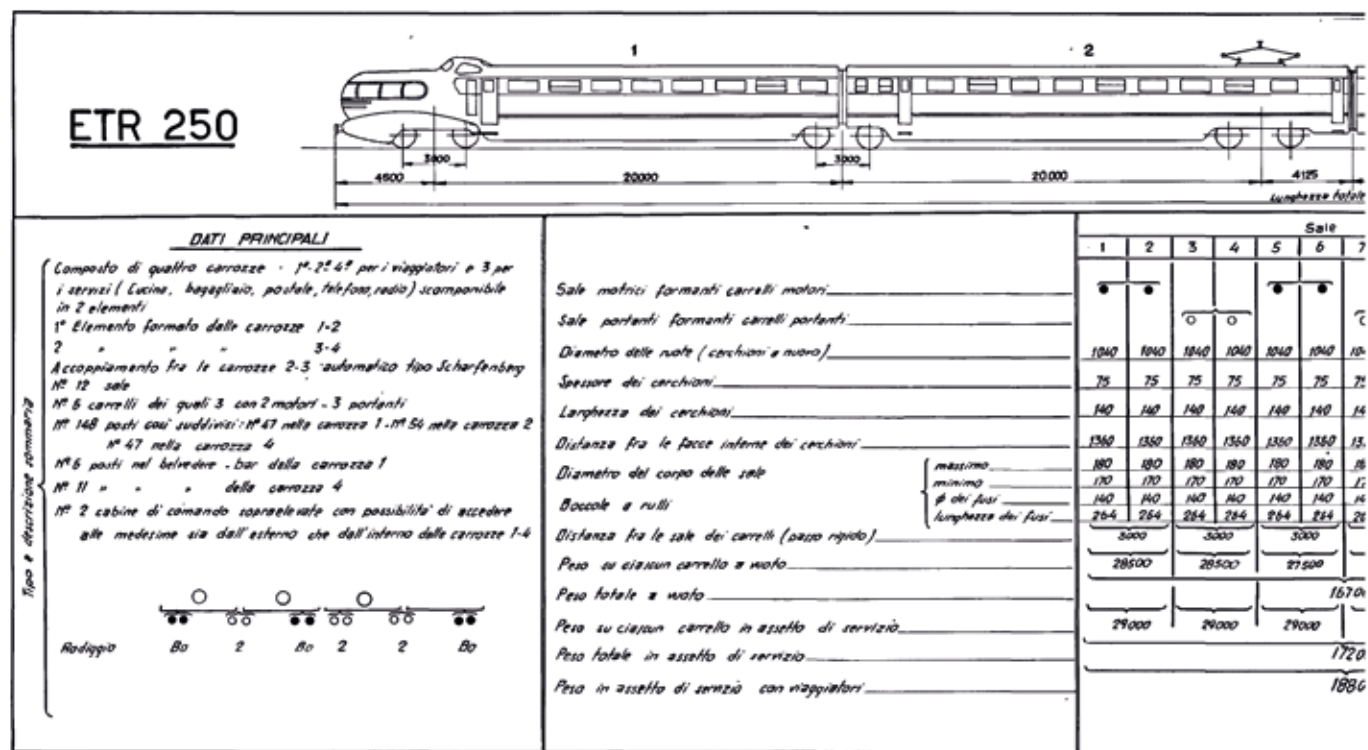 1
2
ETR 250
3000
3000
4600
20.000
20.000
4125
Lunghezza totale
DATI PRINCIPALI
Tipo e descrizione sommaria
Composto di quattro carrozze - 1ª-2ª-4ª per i viaggiatori e 3 per
i servizi (Cucina, bagagliaio, postale, telefono, radio) scomponibile
in 2 elementi
1° Elemento formato dalle carrozze 1-2
2 " " " 3-4
Accoppiamento fra le carrozze 2-3 automatico tipo Scharfenberg
N° 12 sale
N° 6 carrelli dei quali 3 con 2 motori - 3 portanti
N° 148 posti così suddivisi: N° 47 nella carrozza 1 - N° 54 nella carrozza 2
N° 47 nella carrozza 4
N° 6 posti nel belvedere - bar della carrozza 1
N° 11 " " " della carrozza 4
N° 2 cabine di comando sopraelevate con possibilità di accedere
alle medesime sia dall'esterno che dall'interno delle carrozze 1-4
Rodiggio Bo 2 Bo 2 2 Bo
Sale
1 2 3 4 5 6 7
Sale motrici formanti carrelli motori
Sale portanti formanti carrelli portanti
Diametro delle ruote (cerchioni a nuovo) 1040 1040 1040 1040 1040 1040
Spessore dei cerchioni 75 75 75 75 75 75
Larghezza dei cerchioni 140 140 140 140 140 140
Distanza fra le facce interne dei cerchioni 1360 1360 1360 1360 1360 1360
Diametro del corpo delle sale massimo 180 180 180 180 180 180
minimo 170 170 170 170 170 170
Boccole a rulli ϕ dei fusi 140 140 140 140 140 140
lunghezza dei fusi 264 264 264 264 264 264
Distanza fra le sale dei carrelli (passo rigido) 3000 3000 3000
Peso su ciascun carrello a vuoto 28500 28500 27500
Peso totale a vuoto 1670
Peso su ciascun carrello in assetto di servizio 29000 29000 29000
Peso totale in assetto di servizio 1720
Peso in assetto di servizio con viaggiatori 1880